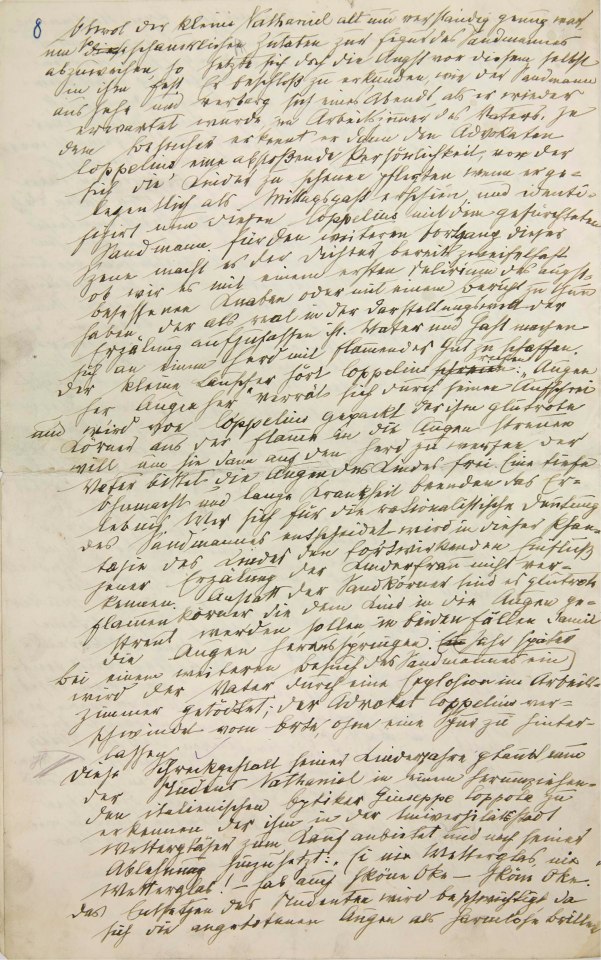 8
Obwol der kleine Nathaniel alt und verständig genug war
um die schauerlichen Zutaten zur Figur des Sandmannes
abzuweisen so setzte sich doch die Angst vor diesem selbst
in ihm fest. Er beschloß zu erkunden, wie der Sandmann
aussehe und verbarg sich eines Abends als er wieder
erwartet wurde im Arbeitszimmer des Vaters. In
dem Besucher erkennt er dann den Advokaten
Coppelius eine abstoßende Persönlichkeit, vor der
sich die Kinder zu scheuen pflegten wenn er ge-
legentlich als Mittagsgast erschien und identi-
fizirt nun diesen Coppelius mit dem gefürchteten
Sandmann. Für den weiteren Fortgang dieser
Szene macht es der Dichter bereits zweifelhaft
ob wir es mit einem ersten Delirium des angst-
besessenen Knaben oder mit einem Bericht zu thun
haben, der als real in der Darstellungswelt der
Erzälung aufzufassen ist. Vater und Gast machen
sich an einem Herd mit flammender Glut zu schaffen.
Der kleine Lauscher hört Coppelius rufen: "Augen
her Augen her" verrät sich durch seinen Aufschrei
und wird von Coppelius gepackt der ihm glutrote
Körner aus der Flamme in die Augen streuen
will um sie dann auf den Herd zu werfen. Der
Vater bittet die Augen des Kindes frei. Eine tiefe
Ohnmacht und lange Krankheit beenden das Er-
lebniß. Wer sich für die rationalistische Deutung
des Sandmannes entscheidet wird in dieser Phan-
tasie des Kindes den fortwirkenden Einfluß
jener Erzälung der Kinderfrau nicht ver-
kennen. Anstatt der Sandkörner sind es glutrote
Flammenkörner die dem Kind in die Augen ge-
streut werden sollen in beiden Fällen damit
die Augen herausspringen. Ein Jahr später
bei einem weiteren Besuch des Sandmannes
wird der Vater durch eine Explosion im Arbeits-
zimmer getödtet; der Advokat Coppelius ver-
schwindet vom Orte, ohne eine Spur zu hinter-
lassen.
Diese Schreckgestalt seiner Kinderjahre glaubt nun
der Student Nathaniel in einem herumziehen-
den italienischen Optiker Giuseppe Coppola zu
erkennen der ihm in der Universitätsstadt
Wettergläser zum Kauf anbietet und nach seiner
Ablehnung hinzusetzt: Ei nix Wetterglas, nix
Wetterglas! — hab auch sköne Oke — sköne Oke.
Das Entsetzen des Studenten wird beschwichtigt da
sich die angebotenen Augen als harmlose Brillen